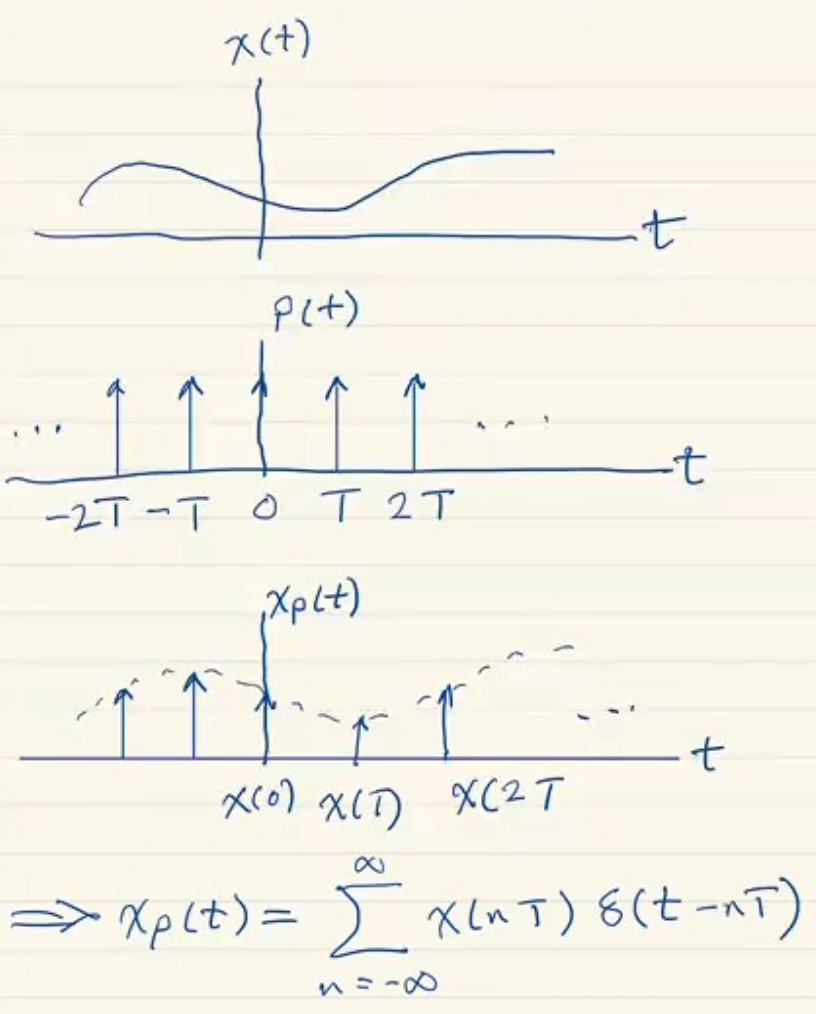 x(t)
t
p(t)
... ...
t
-2T -T 0 T 2T
xp(t)
...
t
x(0) x(T) x(2T
⇒ xp(t) = ∑_{n=-∞}^{∞} x(nT) δ(t-nT)